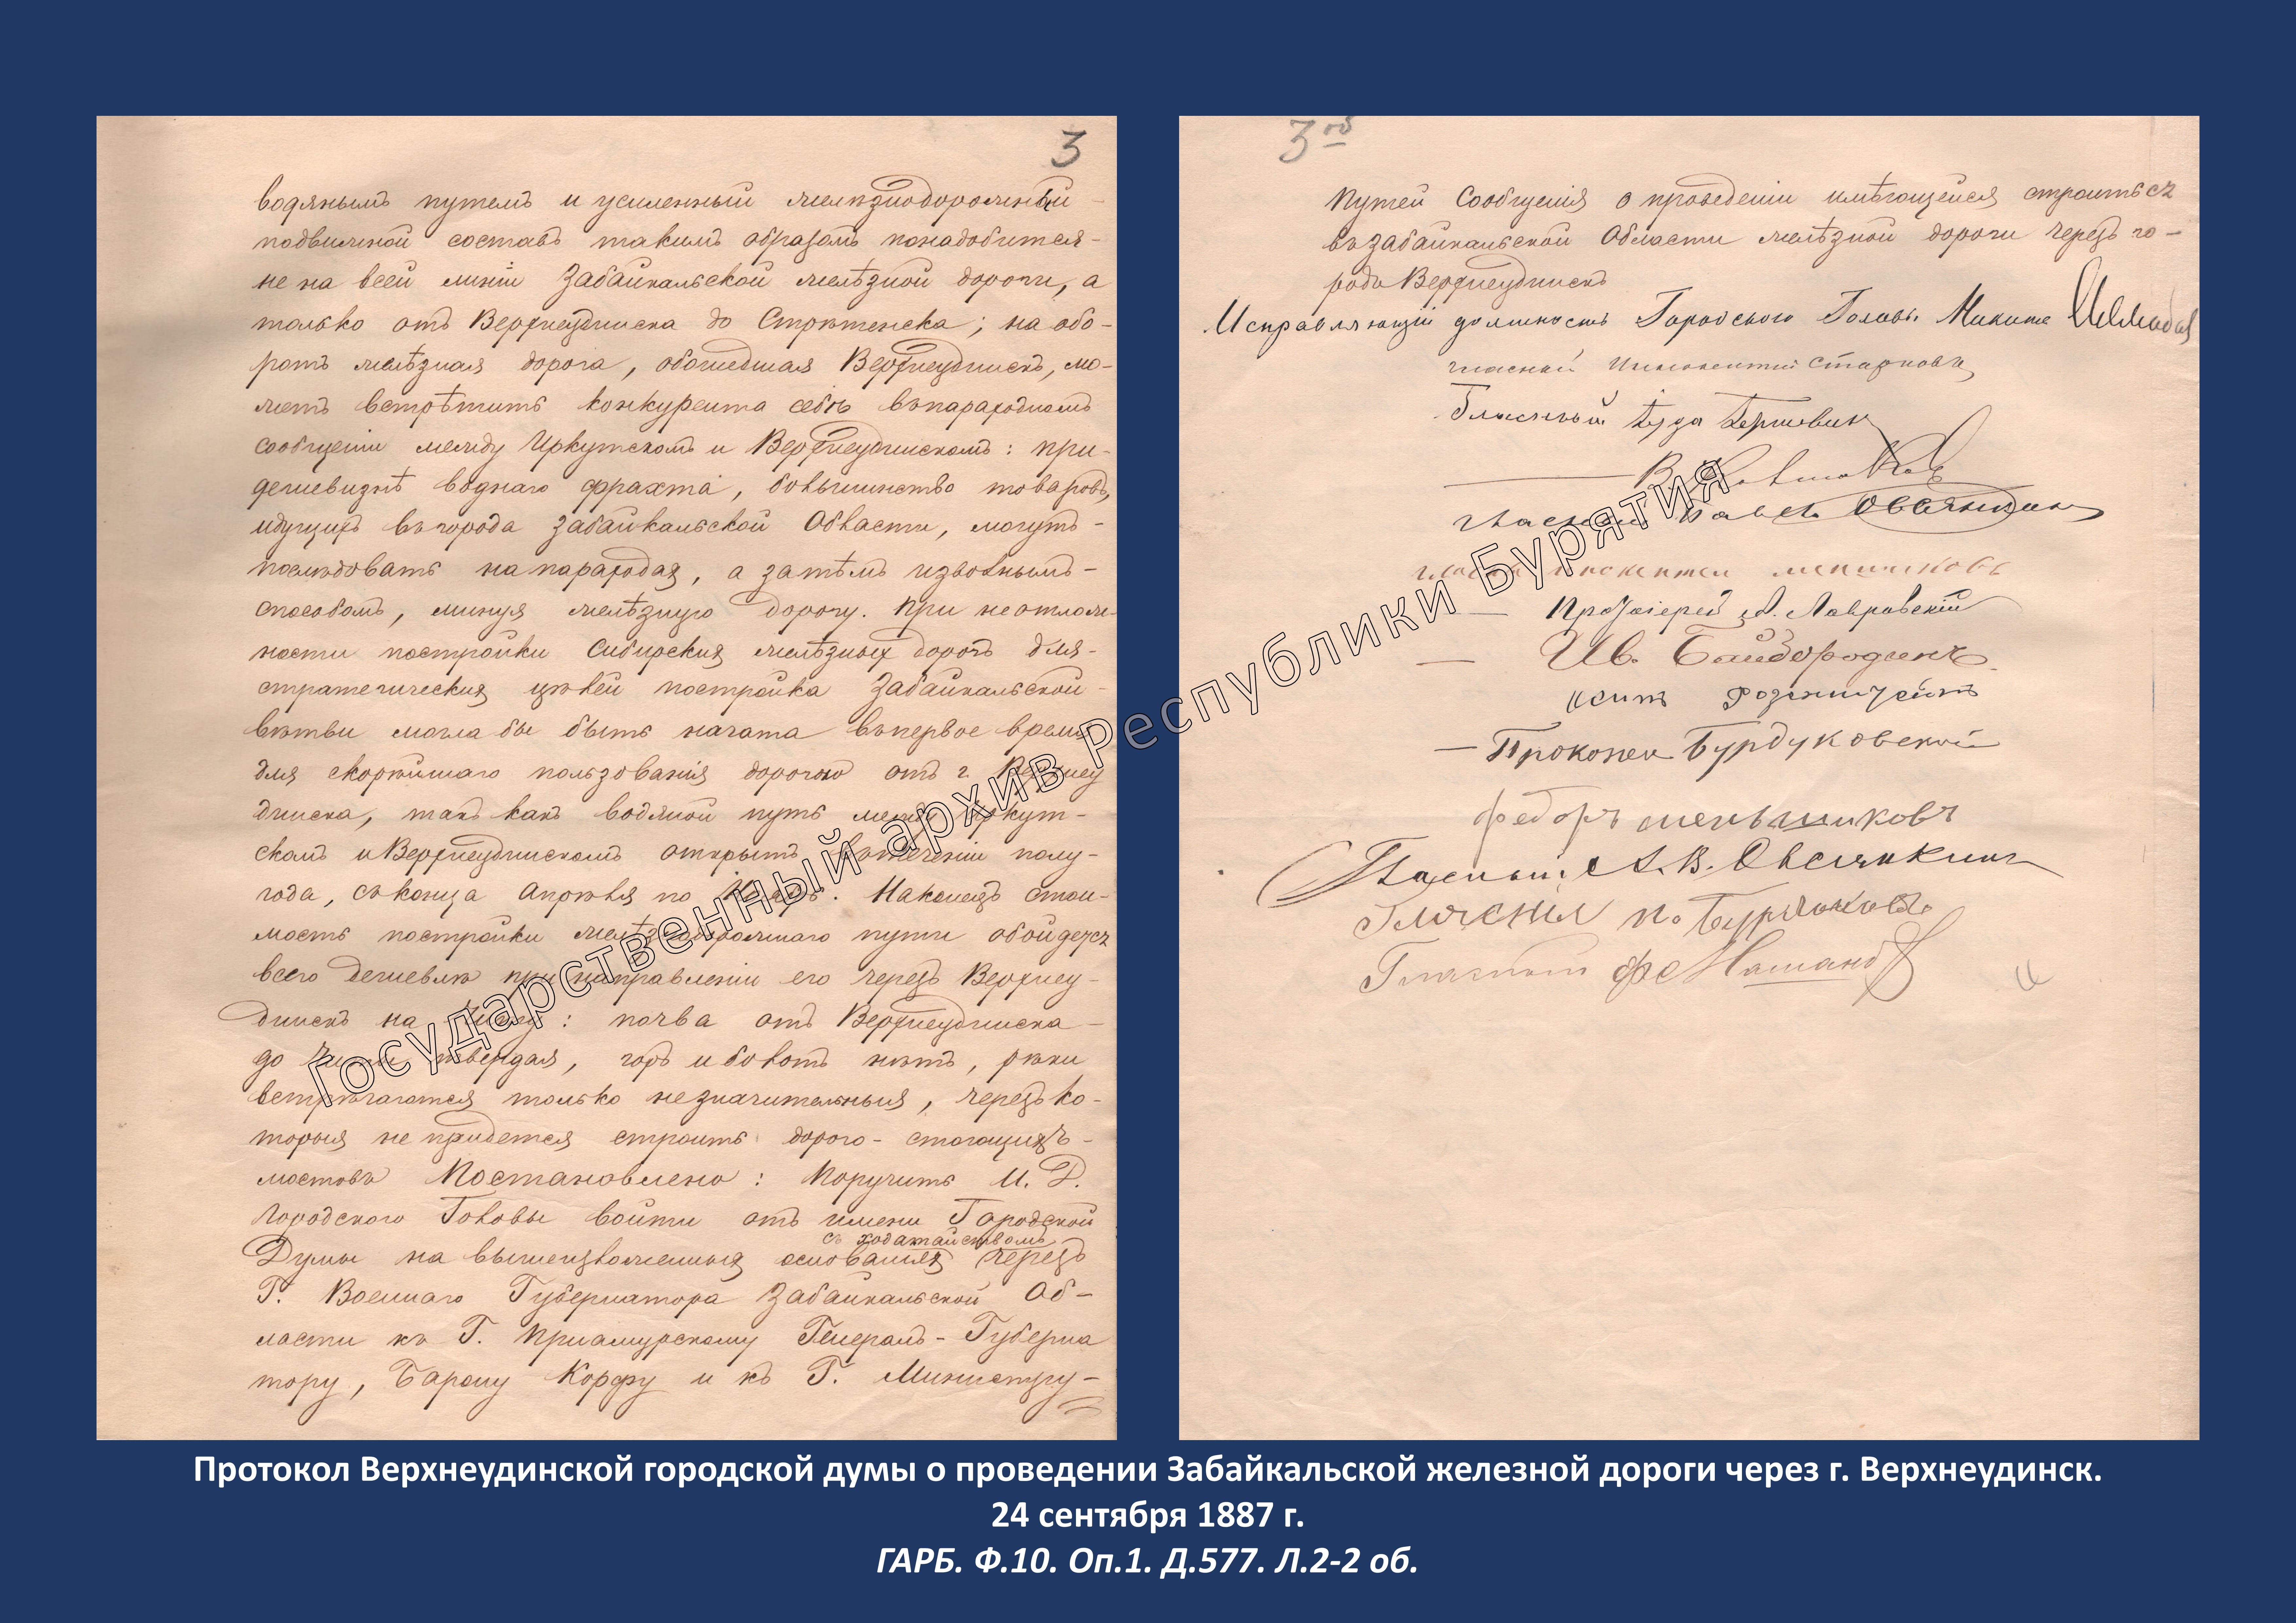 3
водянымъ путемъ и усиленный желѣзнодорожный
подвижной составъ такимъ образомъ понадобится-
не на всей линіи Забайкальской желѣзной дороги, а
только отъ Верхнеудинска до Стрѣтенска; на обо-
ротъ желѣзная дорога, обошедшая Верхнеудинскъ, мо-
жетъ встрѣтить конкурента себѣ въ пароходномъ
сообщеніи между Иркутскомъ и Верхнеудинскомъ: при-
дешевизнѣ воднаго фрахта, большинство товаровъ,
идущихъ въ города Забайкальской Области, могутъ-
послѣдовать на пароходахъ, а затѣмъ извознымъ-
способомъ, минуя желѣзную дорогу. При неотлож-
ности постройки Сибирскихъ желѣзныхъ дорогъ для-
стратегическихъ цѣлей постройка Забайкальской-
вѣтви могла бы быть начата въ первое время
для скорѣйшаго пользованія дорогою отъ г. Верхнеу
динска, такъ какъ водяной путь между Иркут-
скомъ и Верхнеудинскомъ открытъ въ теченіи полу-
года, съ конца Апрѣля по Ноябрь. Наконецъ стои-
мость постройки желѣзнодорожнаго пути обойдется
всего дешевлѣ при направленіи его черезъ Верхнеу-
динскъ на Читу: почва отъ Верхнеудинска-
до Читы твердая, горъ и болотъ нѣтъ, рѣки
встрѣчаются только незначительныя, черезъ ко-
торыя не придется строить дорого-стоющихъ-
мостовъ Постановлено: Поручить И. Д.
Городского Головы войти отъ имени Городской
съ ходатайствомъ
Думы на вышеизложенныхъ основаніяхъ черезъ
Г. Военнаго Губернатора Забайкальской Об-
ласти къ Г. Приамурскому Генералъ-Губерна
тору, Барону Корфу и къ Г. Министру-
3об
Путей Сообщенія о проведеніи имѣющейся строиться
въ Забайкальской Области желѣзной дороги черезъ го-
родъ Верхнеудинскъ
Исправляющій должность Городского Головы Никита
гласный Иннокентій Старковъ
Гласный Іуда
В.
гласный Павелъ Овсянкинъ
гласный меншиковъ
Протоіерей А. Лавровскій
Ив. Байбородинъ
Осипъ Розенштейнъ
Прокопей Бурдуковской
Федоръ меньшиковъ
Гласный А. В. Овсянкинъ
Гласный П.
Гласный
Государственный архив Республики Бурятия
Протокол Верхнеудинской городской думы о проведении Забайкальской железной дороги через г. Верхнеудинск.
24 сентября 1887 г.
ГАРБ. Ф.10. Оп.1. Д.577. Л.2-2 об.